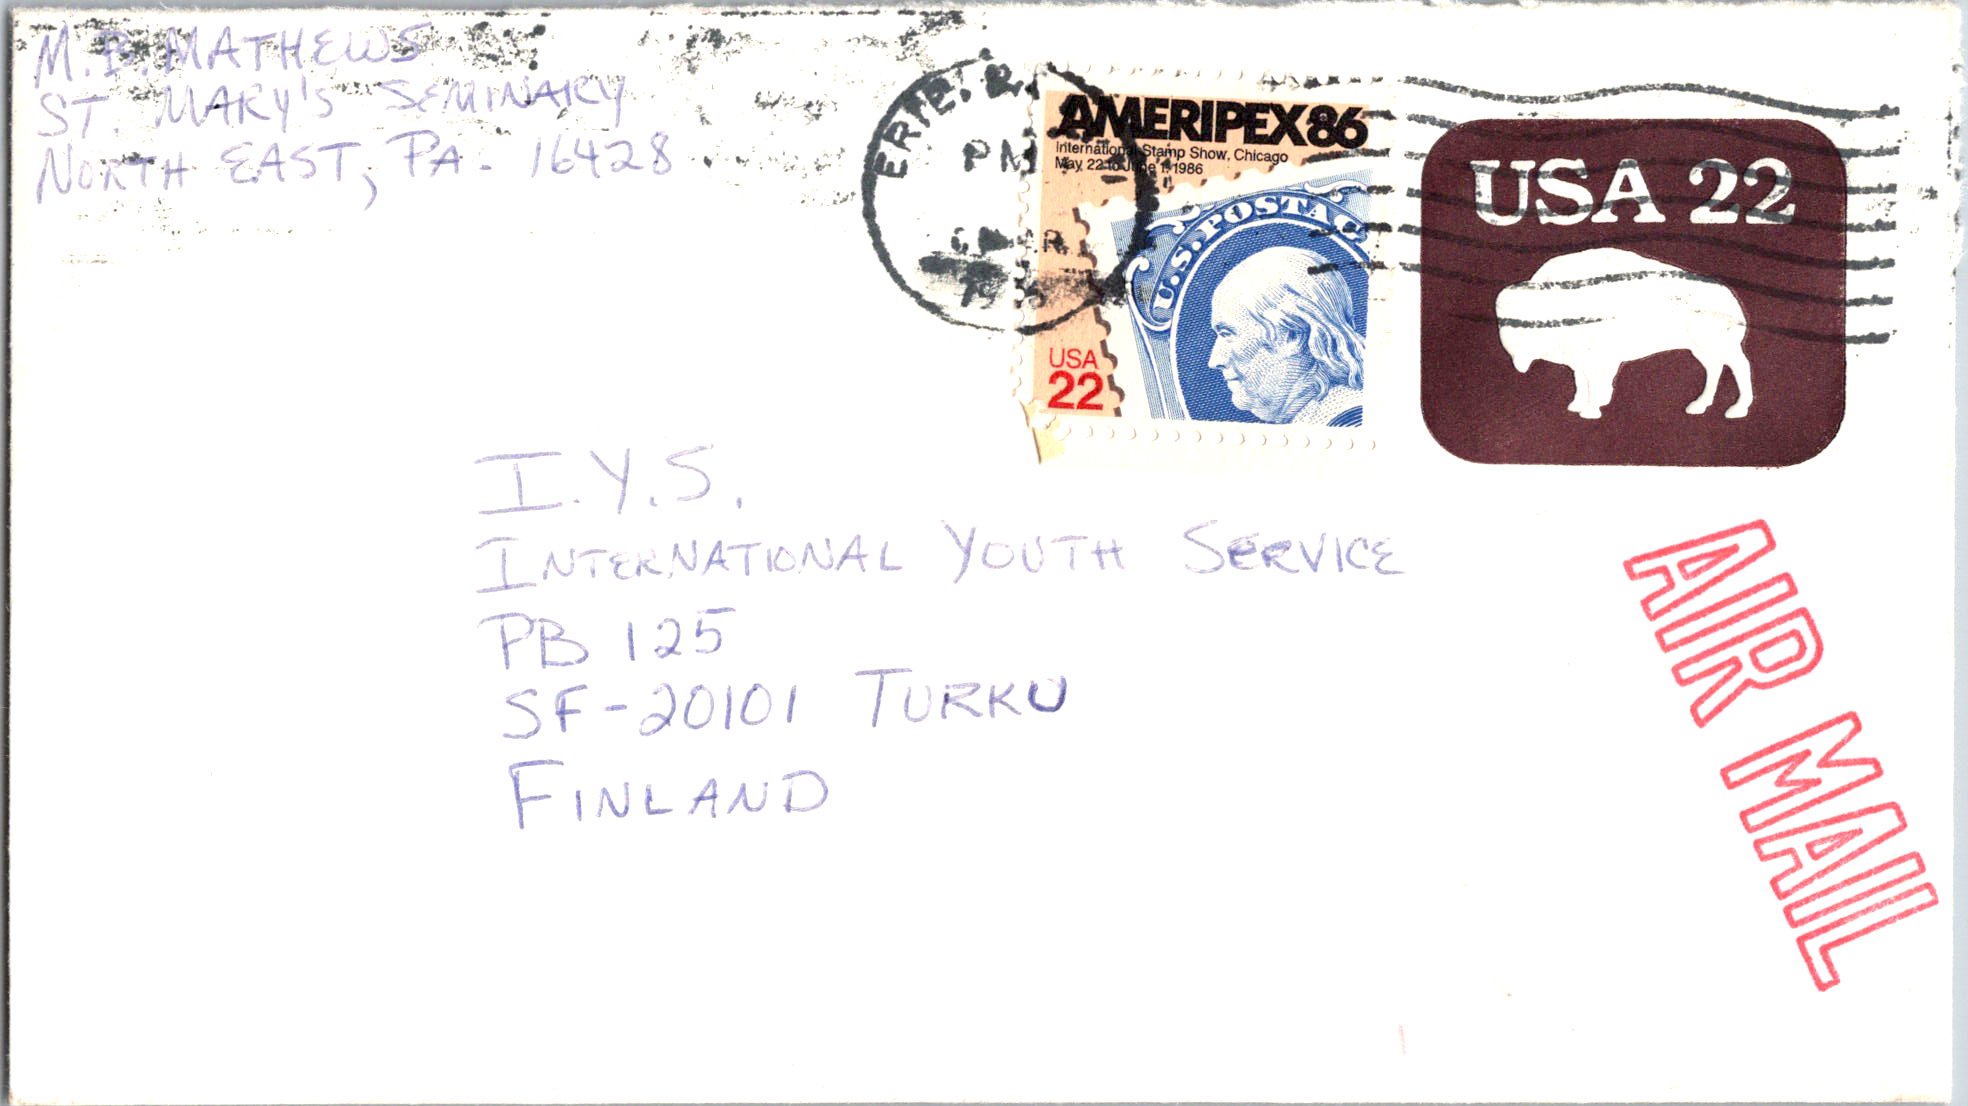 M.B. MATHEWS
ST. MARY'S SEMINARY
NORTH EAST, PA. 16428
ERIE, P
PM
AMERIPEX86
International Stamp Show, Chicago
May 22 to June 1, 1986
U.S. POSTAG
USA
22
USA 22
I.Y.S.
INTERNATIONAL YOUTH SERVICE
PB 125
SF-20101 TURKU
FINLAND
AIR MAIL